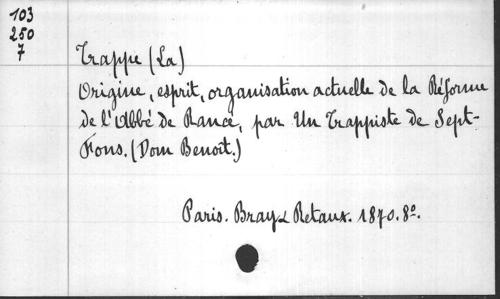 103
250
7
Trappe (La)
Origine, esprit, organisation actuelle de la Réforme
de l'Abbé de Rancé, par Un Trappiste de Sept-
Fons. (Dom Benoît.)
Paris. Bray & Retaux. 1870. 8º.